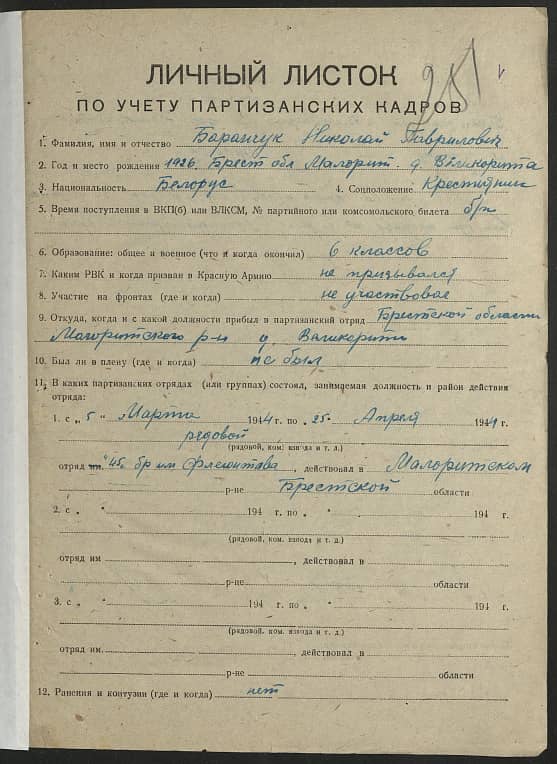 281
ЛИЧНЫЙ ЛИСТОК
ПО УЧЕТУ ПАРТИЗАНСКИХ КАДРОВ
1. Фамилия, имя и отчество Баранчук Николай Гаврилович
2. Год и место рождения 1926, Брест обл Малорит. д. Великорита
3. Национальность Белорус 4. Соцположение Крестьянин
5. Время поступления в ВКП(б) или ВЛКСМ, № партийного или комсомольского билета б/п
6. Образование: общее и военное (что и когда окончил) 6 классов
7. Каким РВК и когда призван в Красную Армию не призывался
8. Участие на фронтах (где и когда) не участвовал
9. Откуда, когда и с какой должности прибыл в партизанский отряд Брестской области
Малоритского р-н д. Великорита
10. Был ли в плену (где и когда) не был
11. В каких партизанских отрядах (или группах) состоял, занимаемая должность и район действия
отряда:
1. с „ 5 " Марта 1944 г. по „ 25 " Апреля 1944 г.
рядовой
(рядовой, ком. взвода и т. д.)
отряд 45. бр им , действовал в Малоритском
р-не Брестской области
2. с „ " 194 г. по „ " 194 г.
(рядовой, ком. взвода и т. д.)
отряд им , действовал в
р-не области
3. с „ " 194 г. по „ " 194 г.
(рядовой, ком. взвода и т. д.)
отряд им. , действовал в
р-не области
12. Ранения и контузии (где и когда) нет